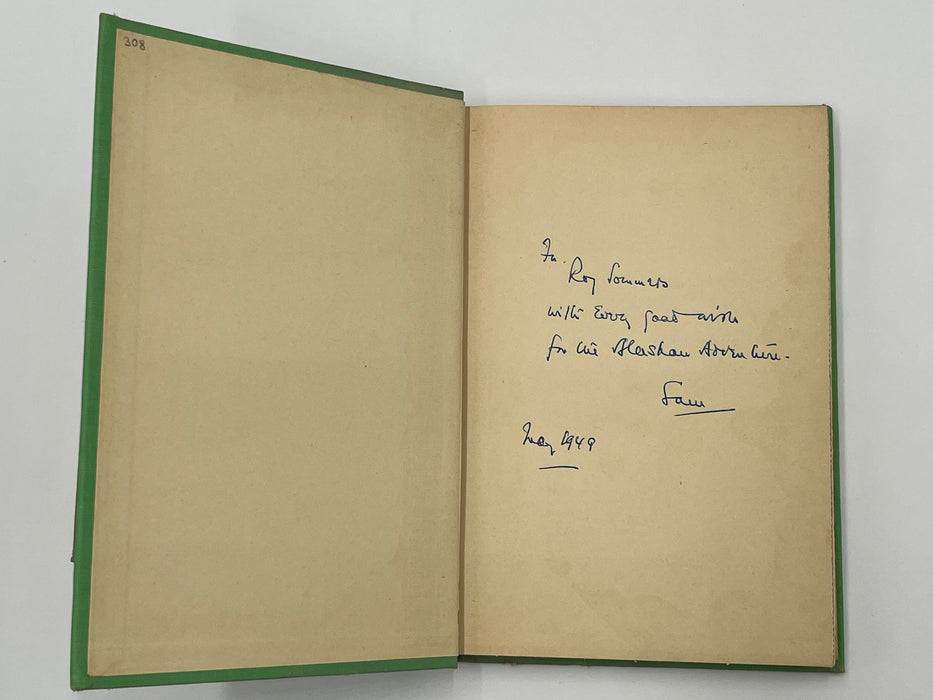 308
For
Roy Sommers
with Every good wish
for his Alaskan Adventure.
Sam
May 1949